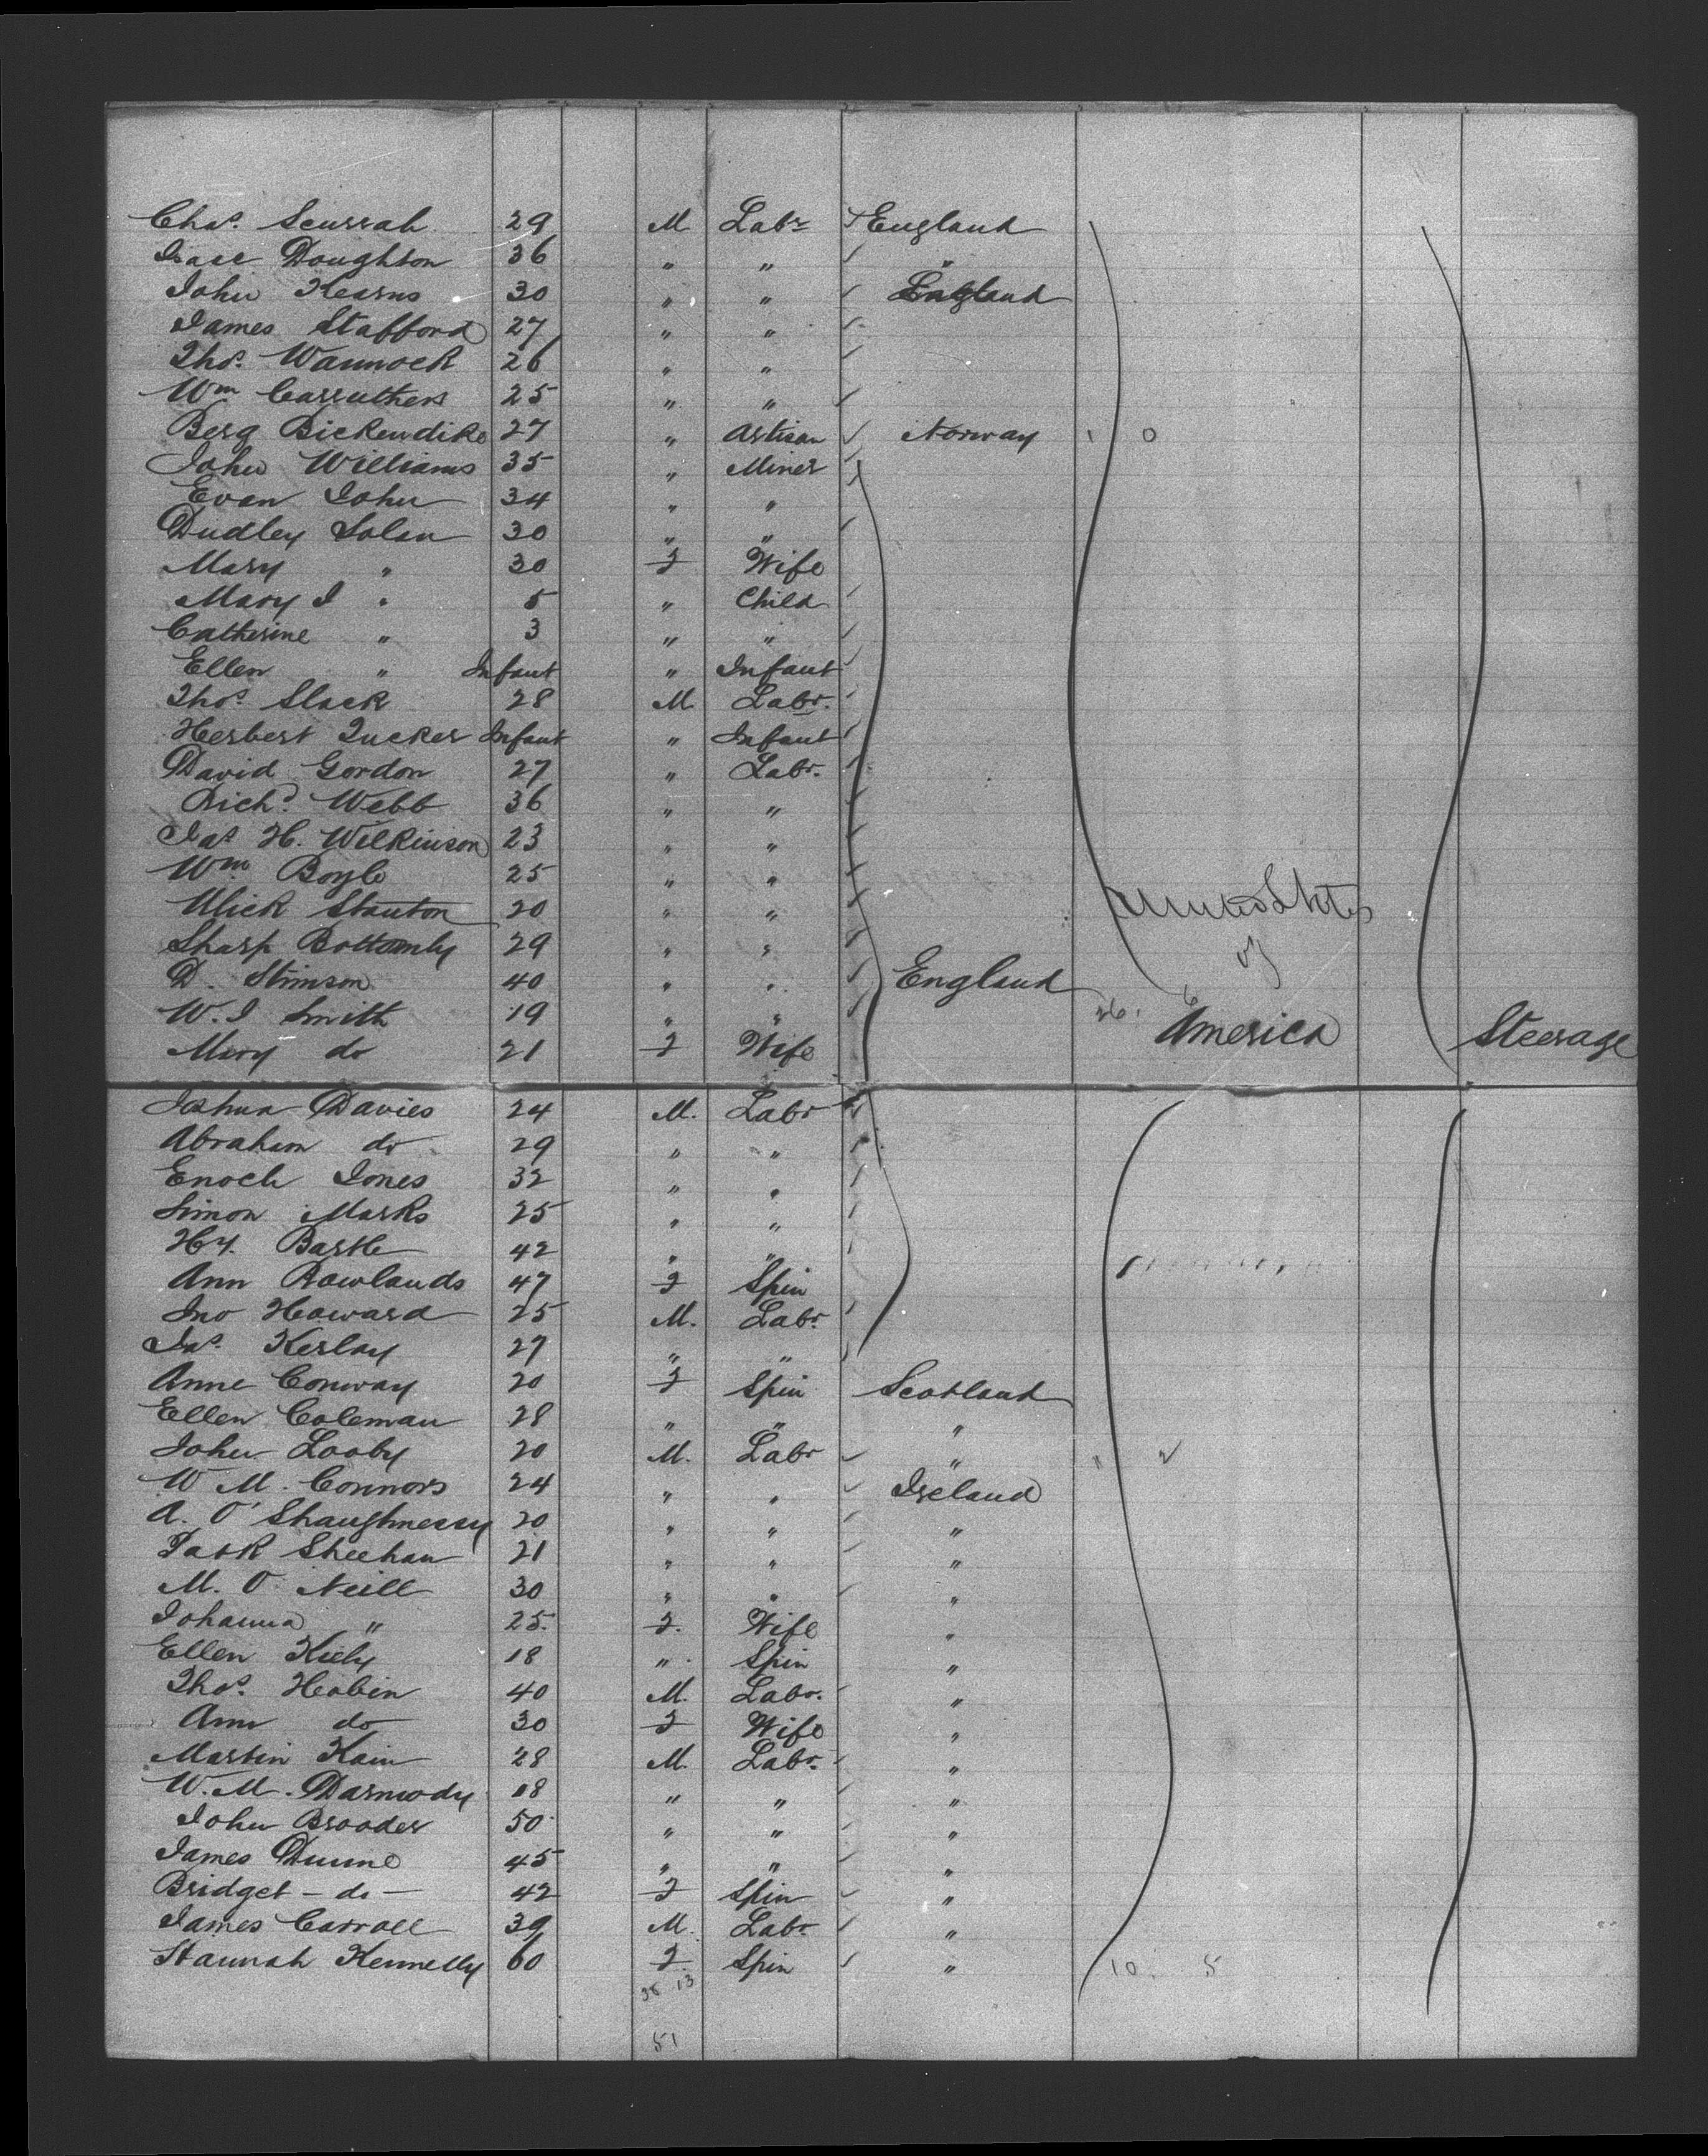 Chas. Scurrah 29 M Labr England
Isaac Doughton 36 " " "
John Kearns 30 " " England
James Stafford 27 " "
Thos. Wannock 26 " "
Wm Carruthers 25 " "
Berg Bickendike 27 " Artisan Norway 1 0
John Williams 35 " Miner
Evan John 34 " "
Dudley Solan 30 " "
Mary " 30 F Wife
Mary J " 5 " Child
Catherine " 3 " "
Ellen " Infant " Infant
Thos. Slack 28 M Labr.
Herbert Tucker Infant " Infant
David Gordon 27 " Labr.
Richd. Webb 36 " "
Jas H. Wilkinson 23 " "
Wm Boyle 25 " "
Ulick Stanton 20 " " United States
Sharp Bottomly 29 " " of
D. Stimson 40 " " England
W. J Smith 19 " " 26. 6 America Steerage
Mary do 21 F Wife
Joshua Davies 24 M. Labr
Abraham do 29 " "
Enoch Jones 32 " "
Simon Marks 25 " "
Hy. Bartle 42 " "
Ann Rowlands 47 F Spin
Jno Howard 25 M. Labr.
Jas. Kerlay 27 " "
Anne Conway 20 F Spin Scotland
Ellen Coleman 28 " " "
John Looby 20 M. Labr " 2
W M. Connors 24 " " Ireland
A. O'Shaughnessy 20 " " "
Patk Sheehan 21 " " "
M. O Neill 30 " " "
Johanna " 25. F. Wife "
Ellen Kiely 18 " Spin "
Thos. Hobin 40 M. Labr. "
Ann do 30 F Wife "
Martin Kain 28 M. Labr. "
W. M. Darmody 18 " " "
John Brooder 50 " " "
James Dunne 45 " " "
Bridget - do - 42 F Spin "
James Carroll 39 M. Labr. "
Hannah Kennelly 60 F. Spin " 10. 5
38 13
51